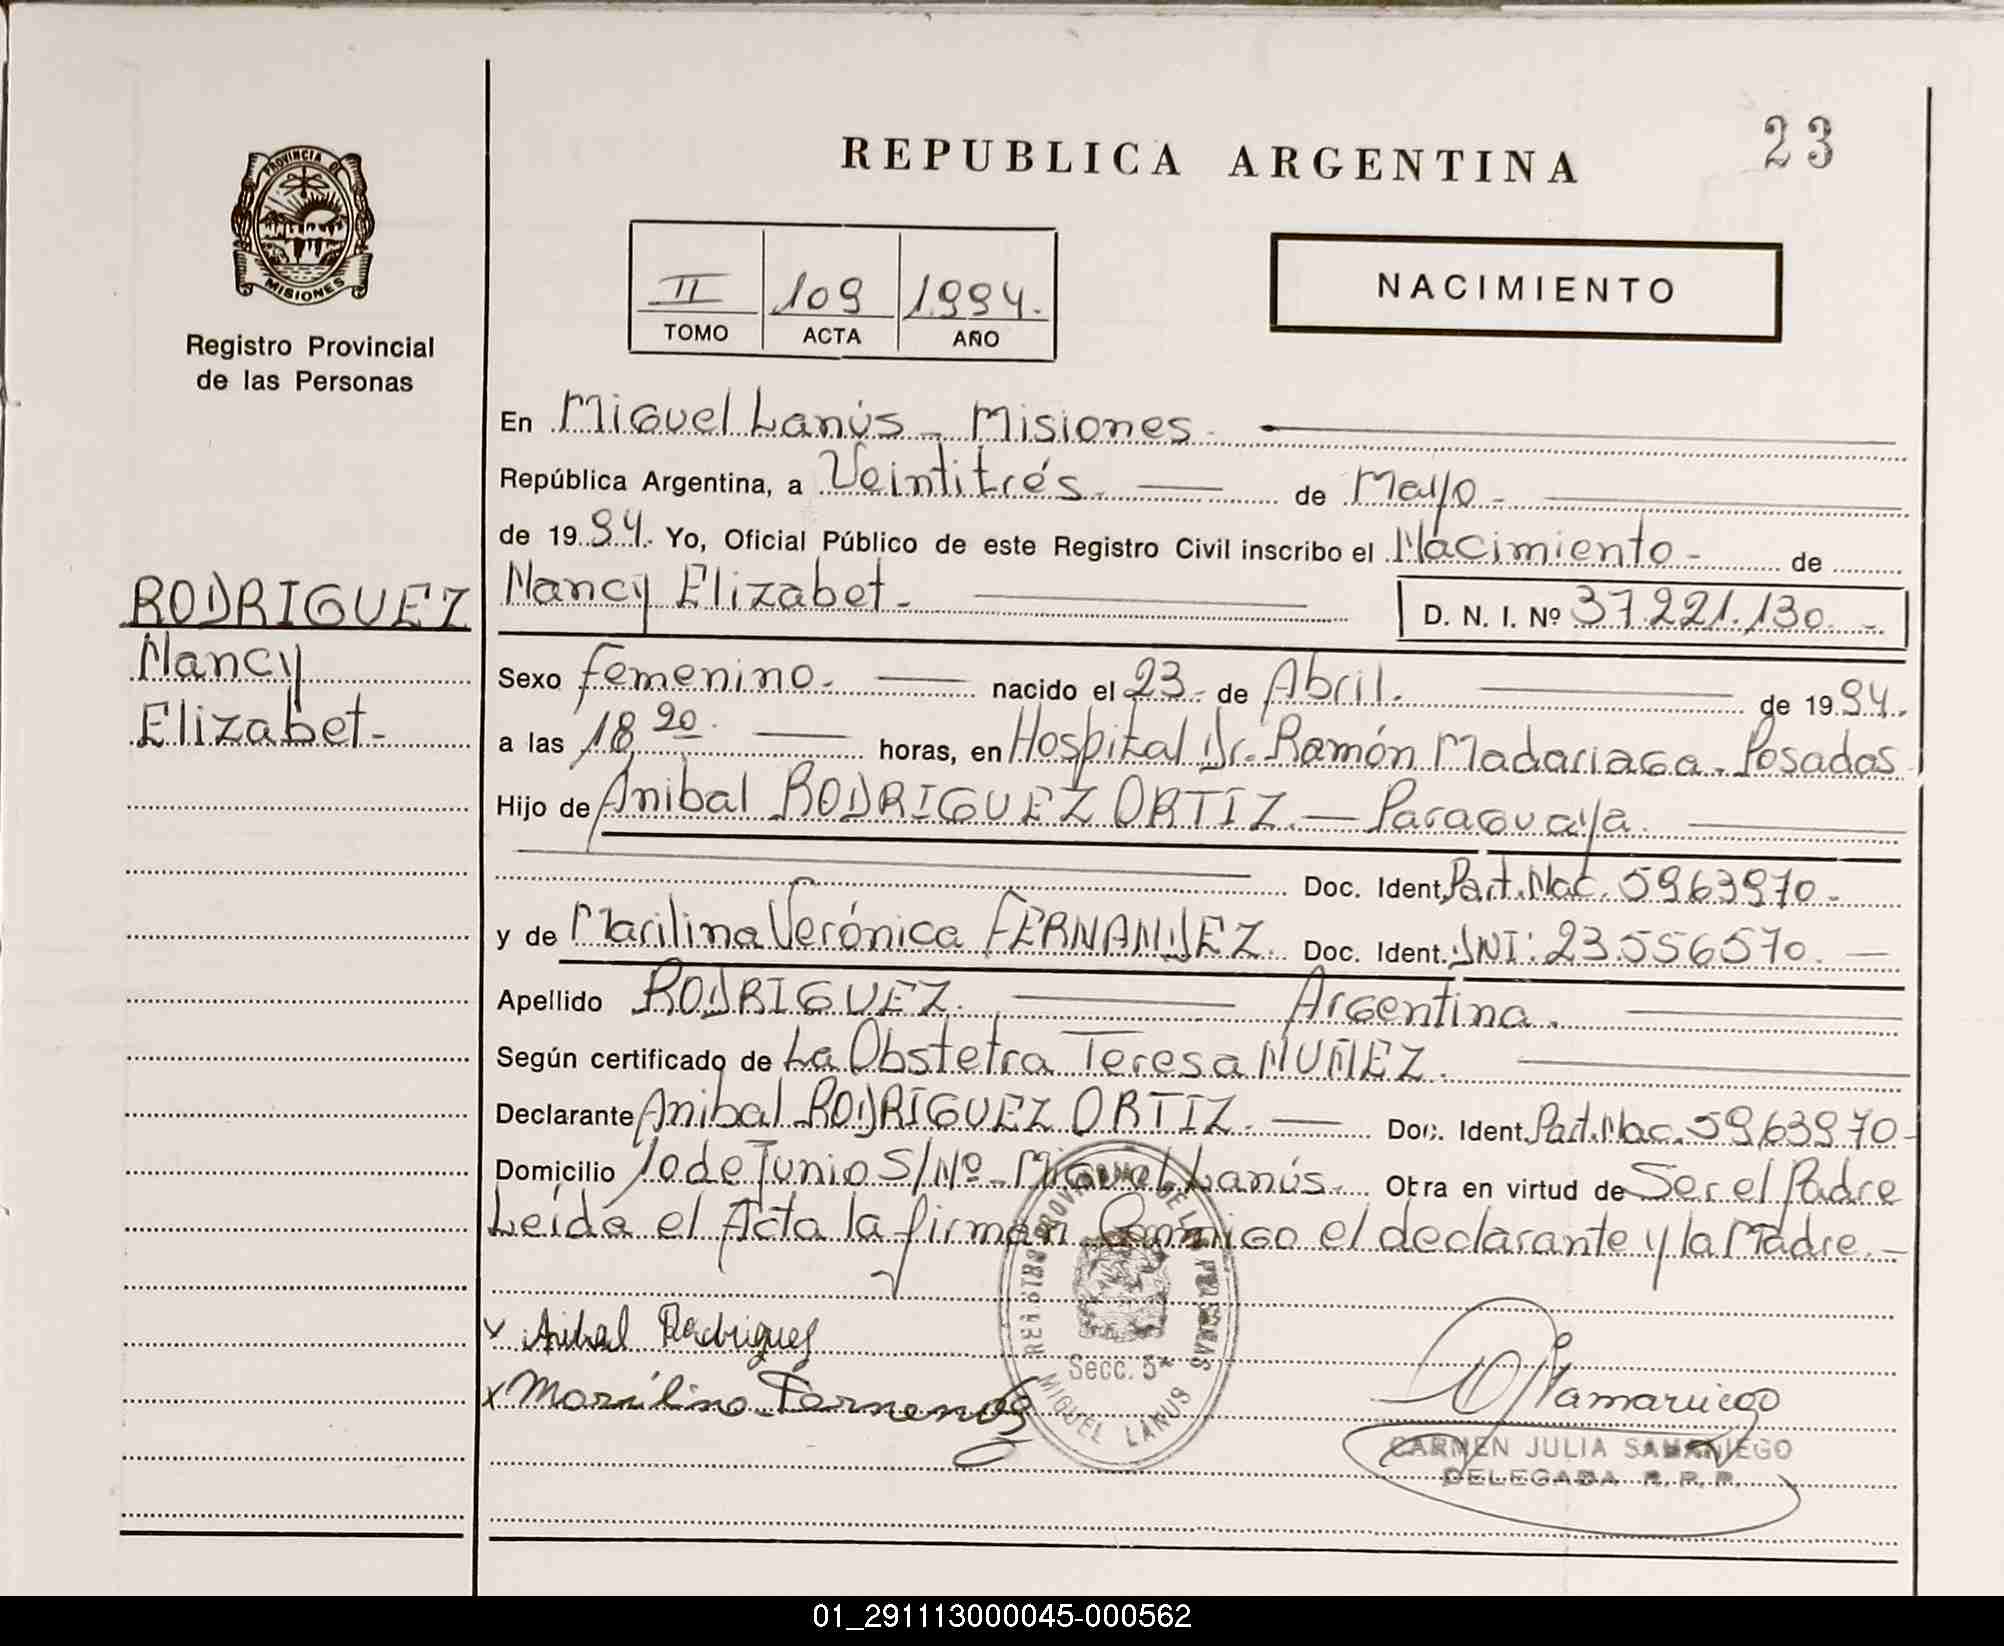 23
REPUBLICA ARGENTINA
PROVINCIA DE
MISIONES
Registro Provincial
de las Personas
II 109 1994.
TOMO ACTA AÑO
NACIMIENTO
En Miguel Lanús - Misiones.
República Argentina, a Veintitrés. de Mayo -
de 1994. Yo, Oficial Público de este Registro Civil inscribo el Nacimiento - de
RODRIGUEZ
Nancy
Elizabet -
Nancy Elizabet - D. N. I. Nº 37.221.130. -
Sexo femenino. nacido el 23 - de Abril. de 1994.
a las 18,20. horas, en Hospital Dr. Ramón Madariaga - Posadas
Hijo de Anibal RODRIGUEZ ORTIZ. — Paraguaya.
Doc. Ident. Part. Nac. 5963970 -
y de Marilina Verónica FERNANDEZ. Doc. Ident. DNI: 23.556570. —
Apellido RODRIGUEZ. Argentina.
Según certificado de La Obstetra Teresa NUÑEZ.
Declarante Anibal RODRIGUEZ ORTIZ. — Doc. Ident. Part. Nac. 5963970 -
Domicilio 10 de Junio S/Nº - Miguel Lanús. Obra en virtud de Ser el Padre
Leída el Acta la firman Conmigo el declarante y la Madre. -
x Anibal Rodriguez
x Marilina Fernendez
REGISTRO PROVINCIAL DE LAS PERSONAS
Secc. 5ª
MIGUEL LANUS
CSamaniego
CARMEN JULIA SAMANIEGO
DELEGADA R. P. P.
01_291113000045-000562